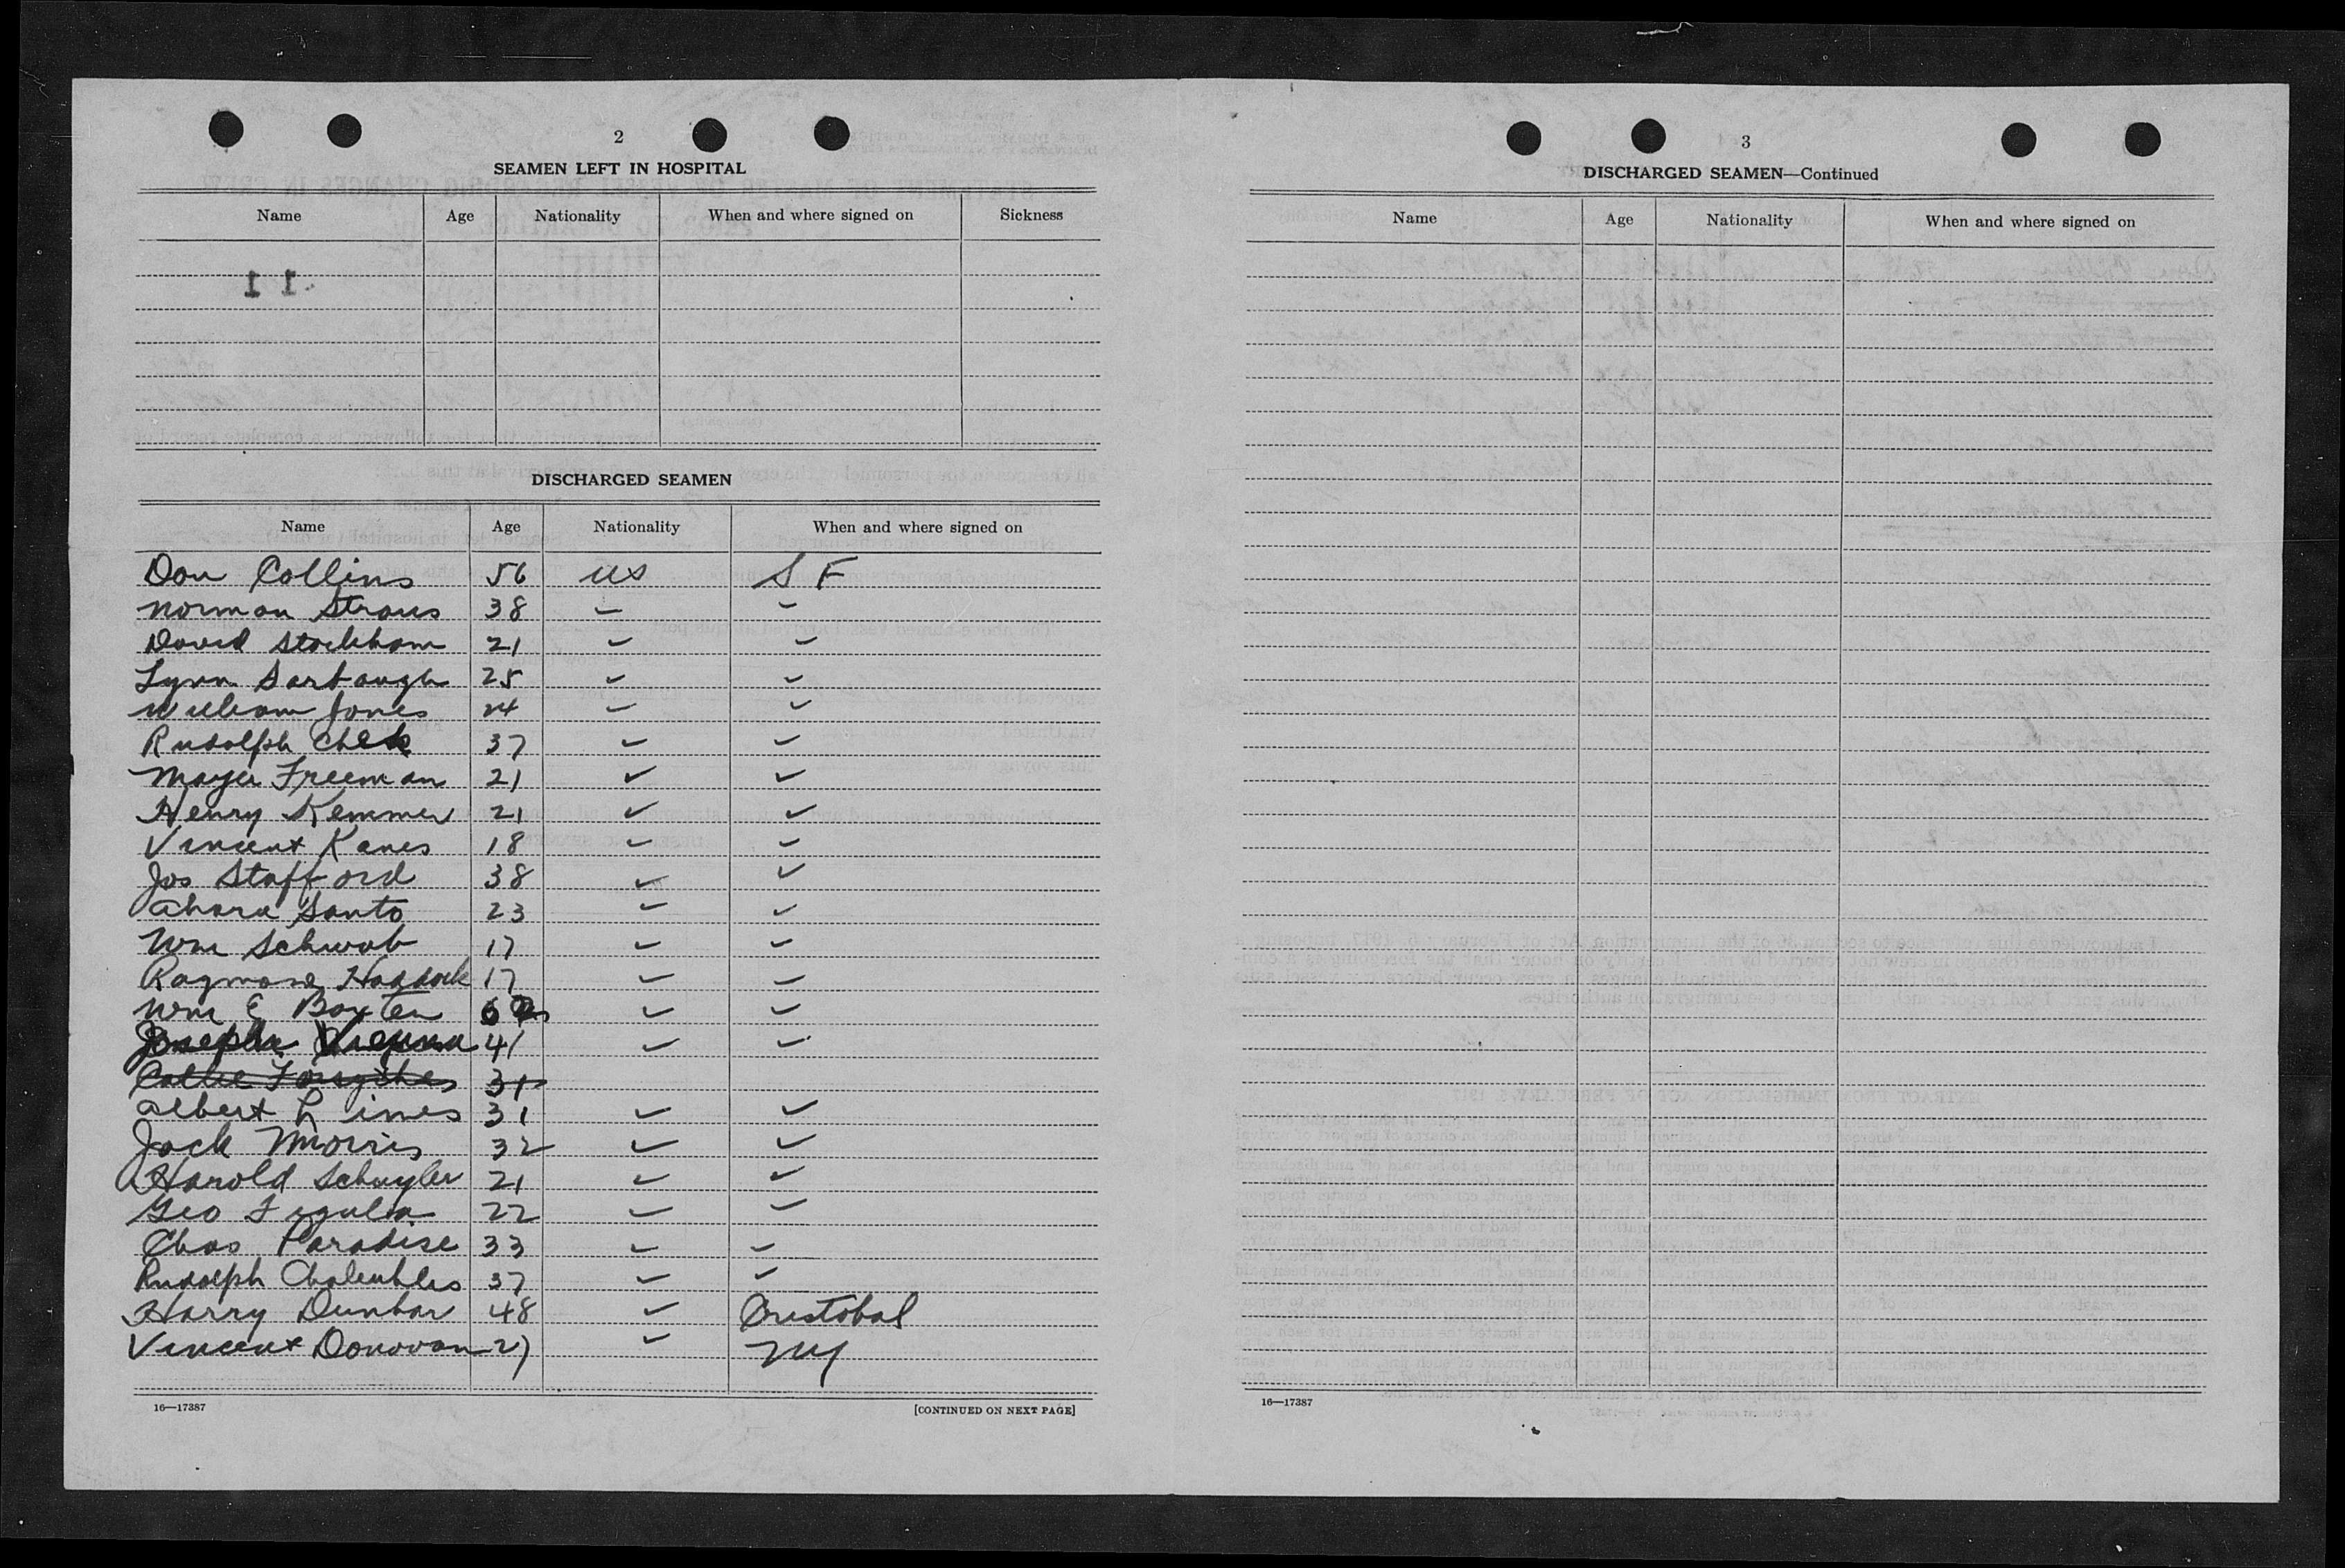 2
SEAMEN LEFT IN HOSPITAL
Name Age Nationality When and where signed on Sickness
11
DISCHARGED SEAMEN
Name Age Nationality When and where signed on
Don Collins 56 US S F
Norman Straus 38 ✓ ✓
David Stockham 21 ✓ ✓
Lynn Sarbaugh 25 ✓ ✓
William Jones 24 ✓ ✓
Rudolph 37 ✓ ✓
Mayer Freeman 21 ✓ ✓
Henry Kemmer 21 ✓ ✓
Vincent Kanes 18 ✓ ✓
Jos Stafford 38 ✓ ✓
Santo 23 ✓ ✓
Wm Schwab 17 ✓ ✓
Raymond Haddock 17 ✓ ✓
Wm E Baxter ✓ ✓
Joseph 41 ✓ ✓
Collie Forsythes 31
Albert L imes 31 ✓ ✓
Jack Morris 32 ✓ ✓
Harold Schuyler 21 ✓ ✓
Geo Figulia 22 ✓ ✓
Chas Paradise 33 ✓ ✓
Rudolph 37 ✓ ✓
Harry Dunbar 48 ✓ Cristobal
Vincent Donovan 27 ✓ NY
16—17387
[CONTINUED ON NEXT PAGE]
3
DISCHARGED SEAMEN—Continued
Name Age Nationality When and where signed on
16—17387